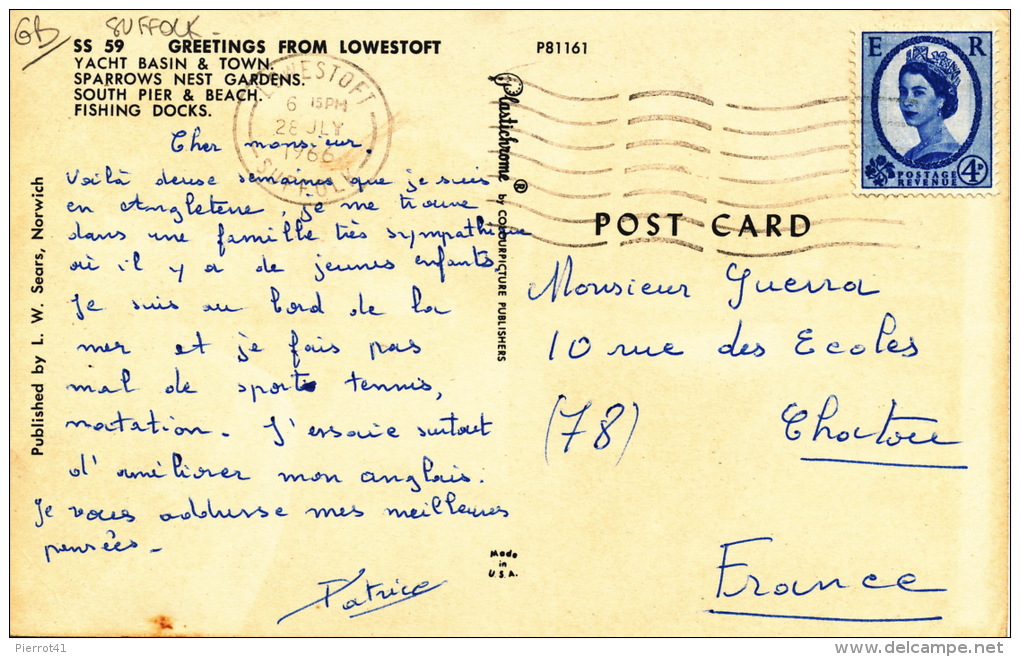 GB SUFFOLK -
SS 59 GREETINGS FROM LOWESTOFT
YACHT BASIN & TOWN.
SPARROWS NEST GARDENS.
SOUTH PIER & BEACH.
FISHING DOCKS.
P81161
LOWESTOFT
6 15PM
28 JLY
1966
SUFFOLK
E R
POSTAGE
REVENUE
4D
Cher monsieur.
Voilà deux semaines que je suis
en Angleterre, je me trouve
dans une famille très sympathique
où il y a de jeunes enfants,
Je suis au bord de la
mer et je fais pas
mal de sport tennis,
natation. J'essaie surtout
d'améliorer mon anglais.
Je vous addresse mes meilleures
pensées -
Patrice
Published by L. W. Sears, Norwich
Plastichrome ® by COLOURPICTURE PUBLISHERS
Made
in
U.S.A.
POST CARD
Monsieur Guerra
10 rue des Ecoles
(78) Chatou
France
Pierrot41
www.delcampe.net